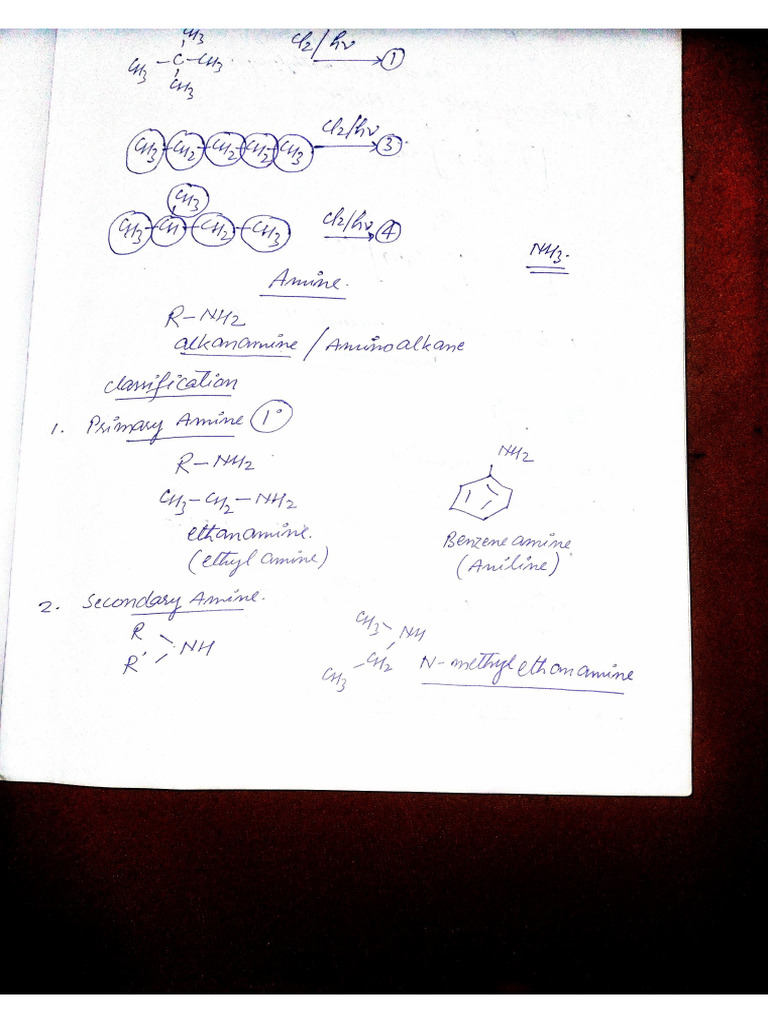 CH3
CH3 - C - CH3 Cl2/hν → 1
CH3
CH3 - CH2 - CH2 - CH2 - CH3 Cl2/hν → 3
CH3
CH3 - CH - CH2 - CH3 Cl2/hν → 4
NH3.
Amine.
R-NH2
alkanamine / Aminoalkane
classification
1. Primary Amine 1°
R-NH2
NH2
CH3-CH2-NH2
ethanamine.
Benzeneamine
(ethyl amine)
(Aniline)
2. Secondary Amine.
R
R' NH
CH3 NH
CH3 - CH2
N-methyl ethanamine